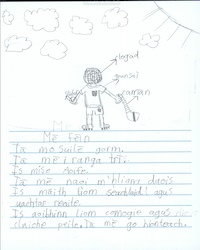 clogad
geansaí
camán
Mé féin
Tá mo súile gorm.
Tá mé i ranga trí.
Is mise Aoife.
Tá mé naoi mbliana d'aois
Is maith liom seacláid! agus
uachtar reoite.
Is aoibhinn liom camogie agus
cluiche peile. Tá mé go hiontach.